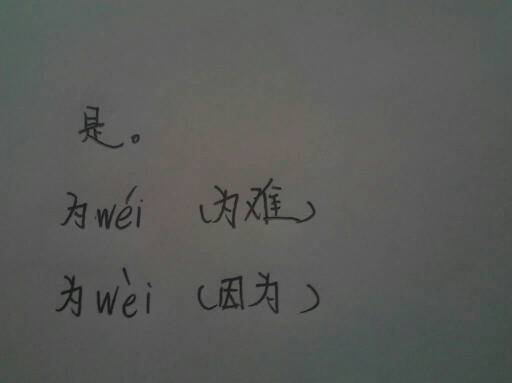 是。
为wéi （为难）
为wèi （因为）